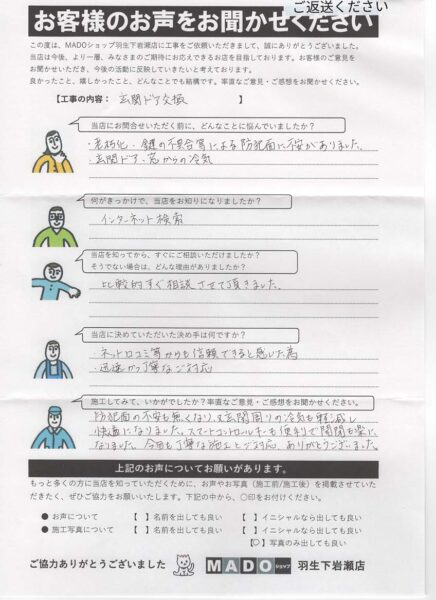 ご返送ください
お客様のお声をお聞かせください
この度は、MADOショップ羽生下岩瀬店に工事をご依頼いただきまして、誠にありがとうございました。
当店は今後、より一層、みなさまのご期待にお応えできるお店を目指しております。お客様のご意見を
お聞かせいただき、今後の活動に反映していきたいと考えております。
良かったこと、嬉しかったこと、どんなことでも結構です。率直なご意見・ご感想をお聞かせください。
【工事の内容: 玄関ドア交換 】
当店にお問合せいただく前に、どんなことに悩んでいましたか？
・老朽化、鍵の不具合等による防犯面に不安がありました。
・玄関ドア、窓からの冷気
何がきっかけで、当店をお知りになりましたか？
インターネット検索
当店を知ってから、すぐにご相談いただけましたか？
そうでない場合は、どんな理由がありましたか？
比較的すぐ相談させて頂きました。
当店に決めていただいた決め手は何ですか？
・ネット口コミ等からも信頼できると感じた為
・迅速かつ丁寧なご対応
施工してみて、いかがでしたか？率直なご意見・ご感想をお聞かせください。
防犯面の不安も無くなり、玄関周りの冷気も軽減し
快適になりました。スマートコントロールキーも便利で開閉も楽に
なりました。今回も丁寧な施工とご対応、ありがとうございました。
上記のお声についてお願いがあります。
もっと多くの方に当店を知っていただくために、お声やお写真（施工前/施工後）を掲載させていた
だきたく、ぜひご協力をお願いいたします。下記の中から、〇印をお付けください。
● お声について 【 】名前を出しても良い 【 】イニシャルなら出しても良い
● 施工写真について 【 】名前を出しても良い 【 】イニシャルなら出しても良い
【〇】写真のみ出しても良い
ご協力ありがとうございました MADOショップ 羽生下岩瀬店